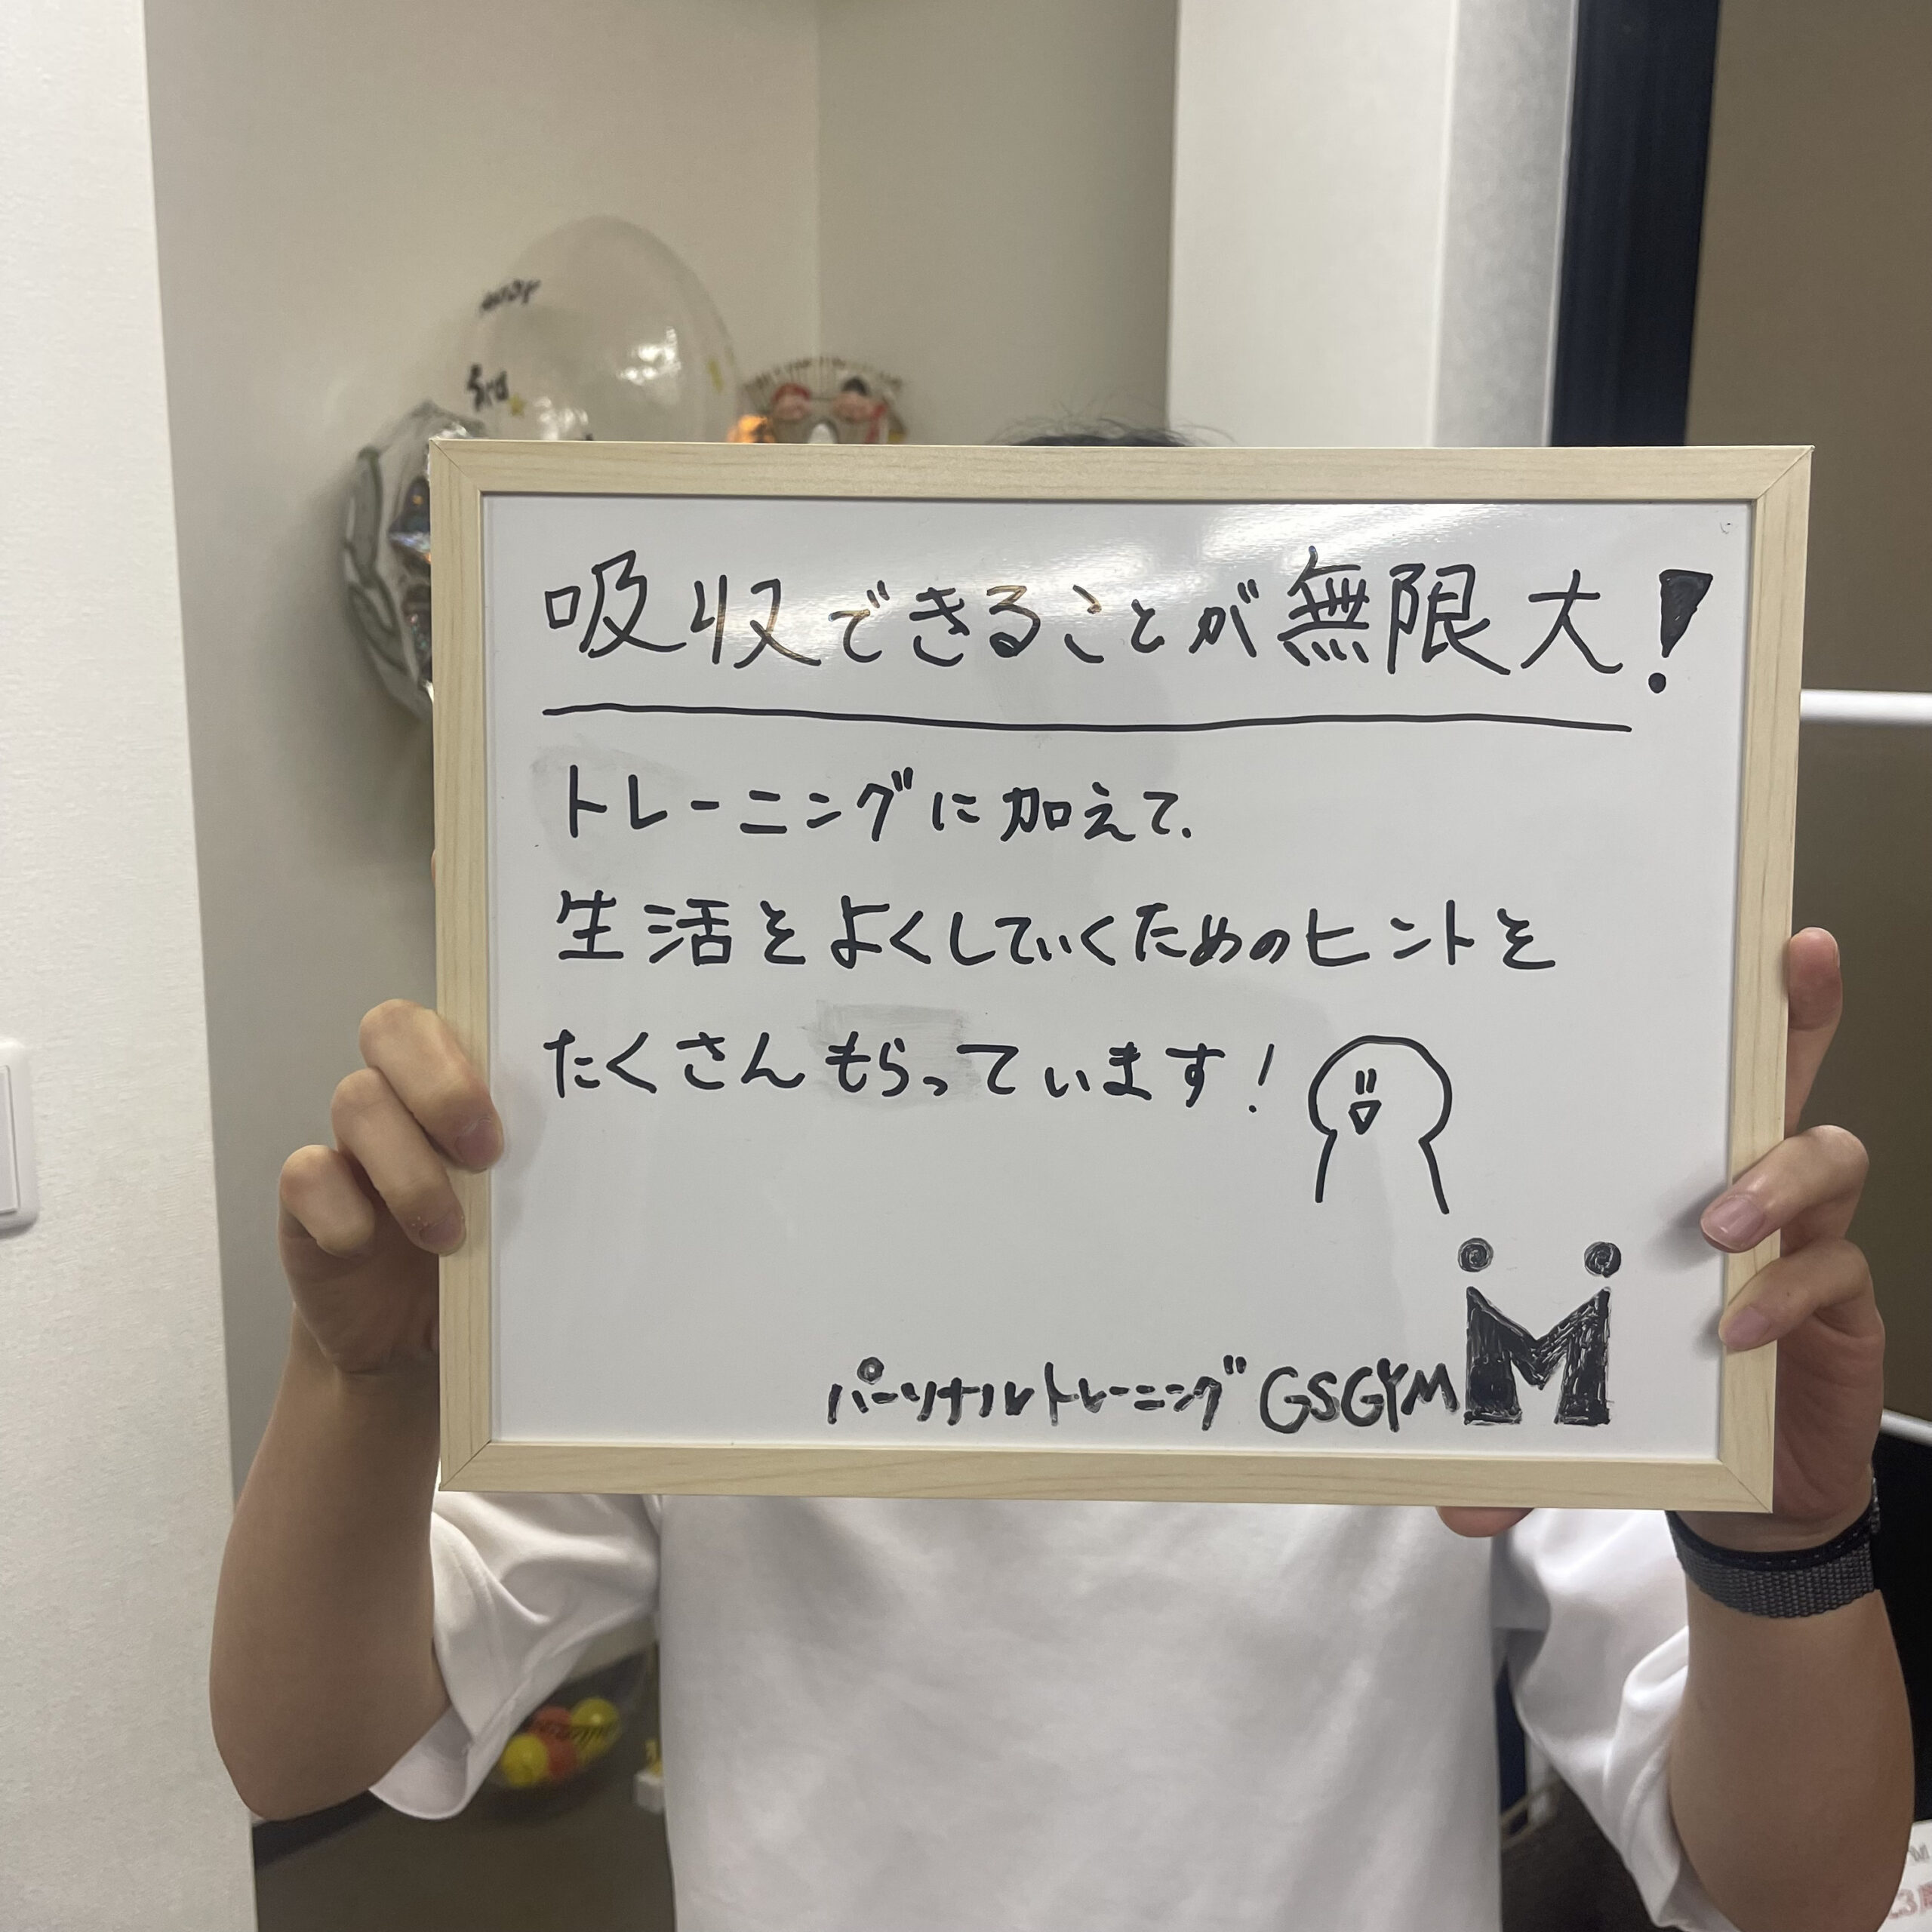 吸収できることが無限大!
トレーニングに加えて、
生活をよくしていくためのヒントを
たくさんもらっています!
パーソナルトレーニング GSGYM
M
3rd